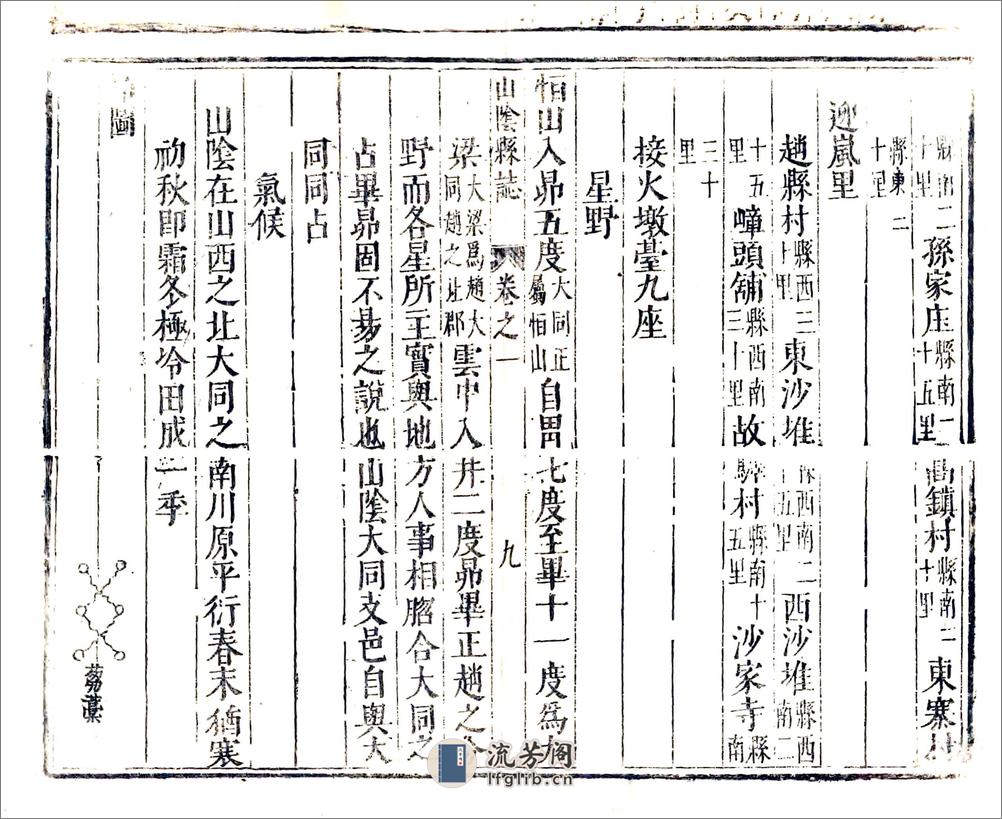 縣南二十里孫家庄縣南一十五里鎮村縣南二十里東寨
縣東二十里
迎嵐里
趙縣村縣西三十里東沙堆西南二十五里西沙堆縣西南二
十五里嶂頭舖縣西南三十里故村縣南十五里沙家寺縣南
三十里
接火墩臺九座
星野
恒山入昴五度大同正屬恒山自胃七度至畢十一度爲大
山陰縣誌 卷之一 九
梁大梁爲趙大同趙之北郡雲中入井二度昴畢正趙之分
野而各星所主實與地方人事相脗合大同之
占畢昴固不易之說也山陰大同支邑自與大
同同占
氣候
山陰在山西之北大同之南川原平衍春末猶寒
初秋即霜冬極冷田成一季
圖
蒭藁
流芳阁
lfglib.cn